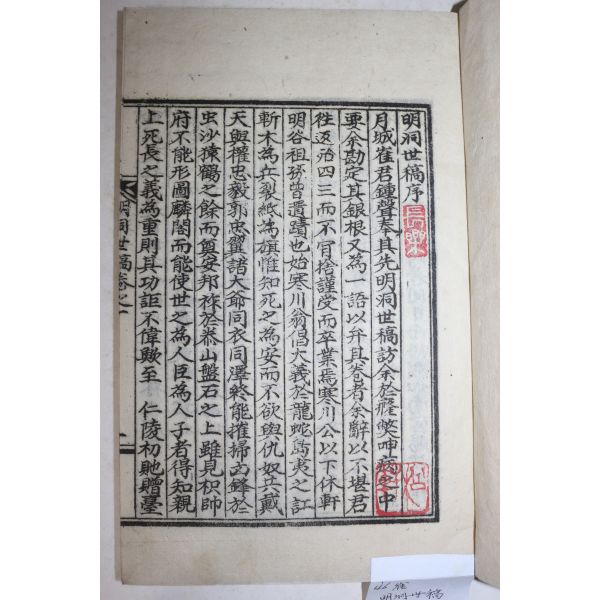 明洞世稿序
月城崔君鍾聲奉其先明洞世稿訪余於癃憊呻病之中
要余勘定其銀根又為一語以弁其卷者余辭以不堪君
徃返治四三而不肯捨謹受而卒業焉寒川公以下休軒
明谷祖孫曾遺蹟也始寒川翁倡大義於龍蛇島夷之訌
斬木為兵裂紙為旗惟知死之為安而不欲與仇奴共戴
天與權忠毅郭忠翼諸大爺同衣同澤終能摧掃凶鋒於
虫沙猿鶴之餘而奠安邦祚於泰山盤石之上雖見枳帥
府不能形圖麟閣而能使世之為人臣為人子者得知親
上死長之義為重則其功詎不偉歟至 仁陵初貤贈臺
明洞世稿卷之一
一
明洞世稿